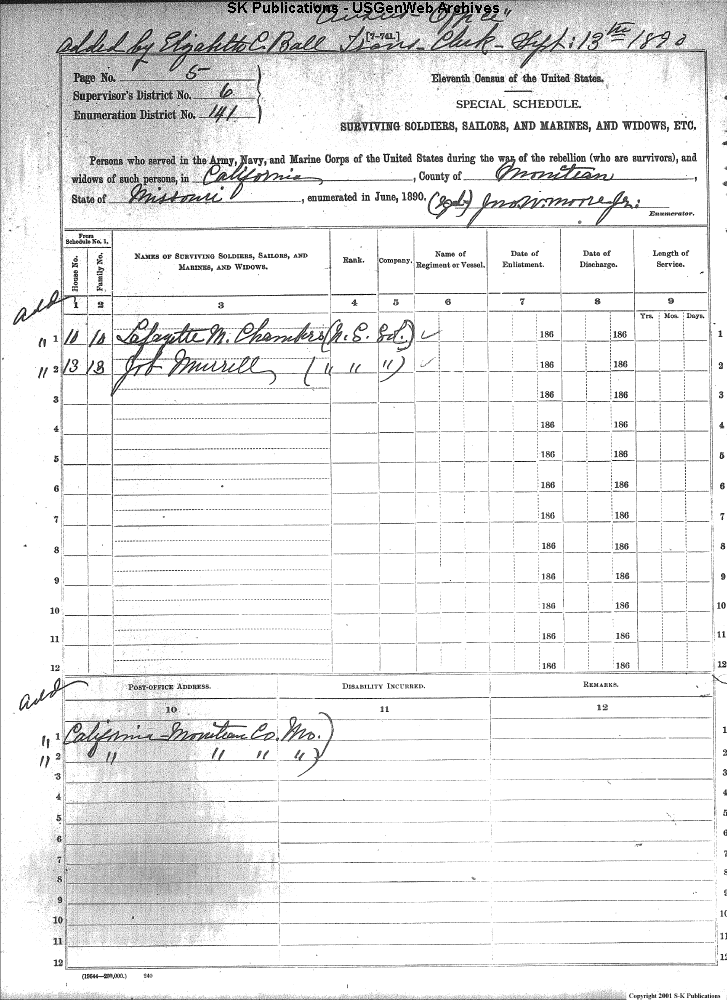 SK Publications - USGenWeb Archives
Census Office"
[7-741.]
added by Elizabeth C. Ball Trans. Clerk - Sept: 13th 1890
Page No. 5
Supervisor's District No. 6
Enumeration District No. 141
Eleventh Census of the United States.
SPECIAL SCHEDULE.
SURVIVING SOLDIERS, SAILORS, AND MARINES, AND WIDOWS, ETC.
Persons who served in the Army, Navy, and Marine Corps of the United States during the war of the rebellion (who are survivors), and
widows of such persons, in California, County of Moniteau,
State of Missouri, enumerated in June, 1890. Jno W. Moore Jr.
Enumerator.
From Schedule No. 1.
House No. Family No. NAMES OF SURVIVING SOLDIERS, SAILORS, AND MARINES, AND WIDOWS. Rank. Company. Name of Regiment or Vessel. Date of Enlistment. Date of Discharge. Length of Service.
add
1 2 3 4 5 6 7 8 9
Yrs. Mos. Days.
" 1 10 10 Lafayette M. Chambers (U. S. Sol.) ✓ 186 186 1
" 2 13 13 Job Murrell (" " ") ✓ 186 186 2
3 186 186 3
4 186 186 4
5 186 186 5
6 186 186 6
7 186 186 7
8 186 186 8
9 186 186 9
10 186 186 10
11 186 186 11
12 186 186 12
add
POST-OFFICE ADDRESS. DISABILITY INCURRED. REMARKS.
10 11 12
" 1 California Moniteau Co. Mo.) 1
" 2 " " " ") 2
3 3
4 4
5 5
6 6
7 7
8 8
9 9
10 10
11 11
12 12
(19644—200,000.) 240
Copyright 2001 S-K Publications